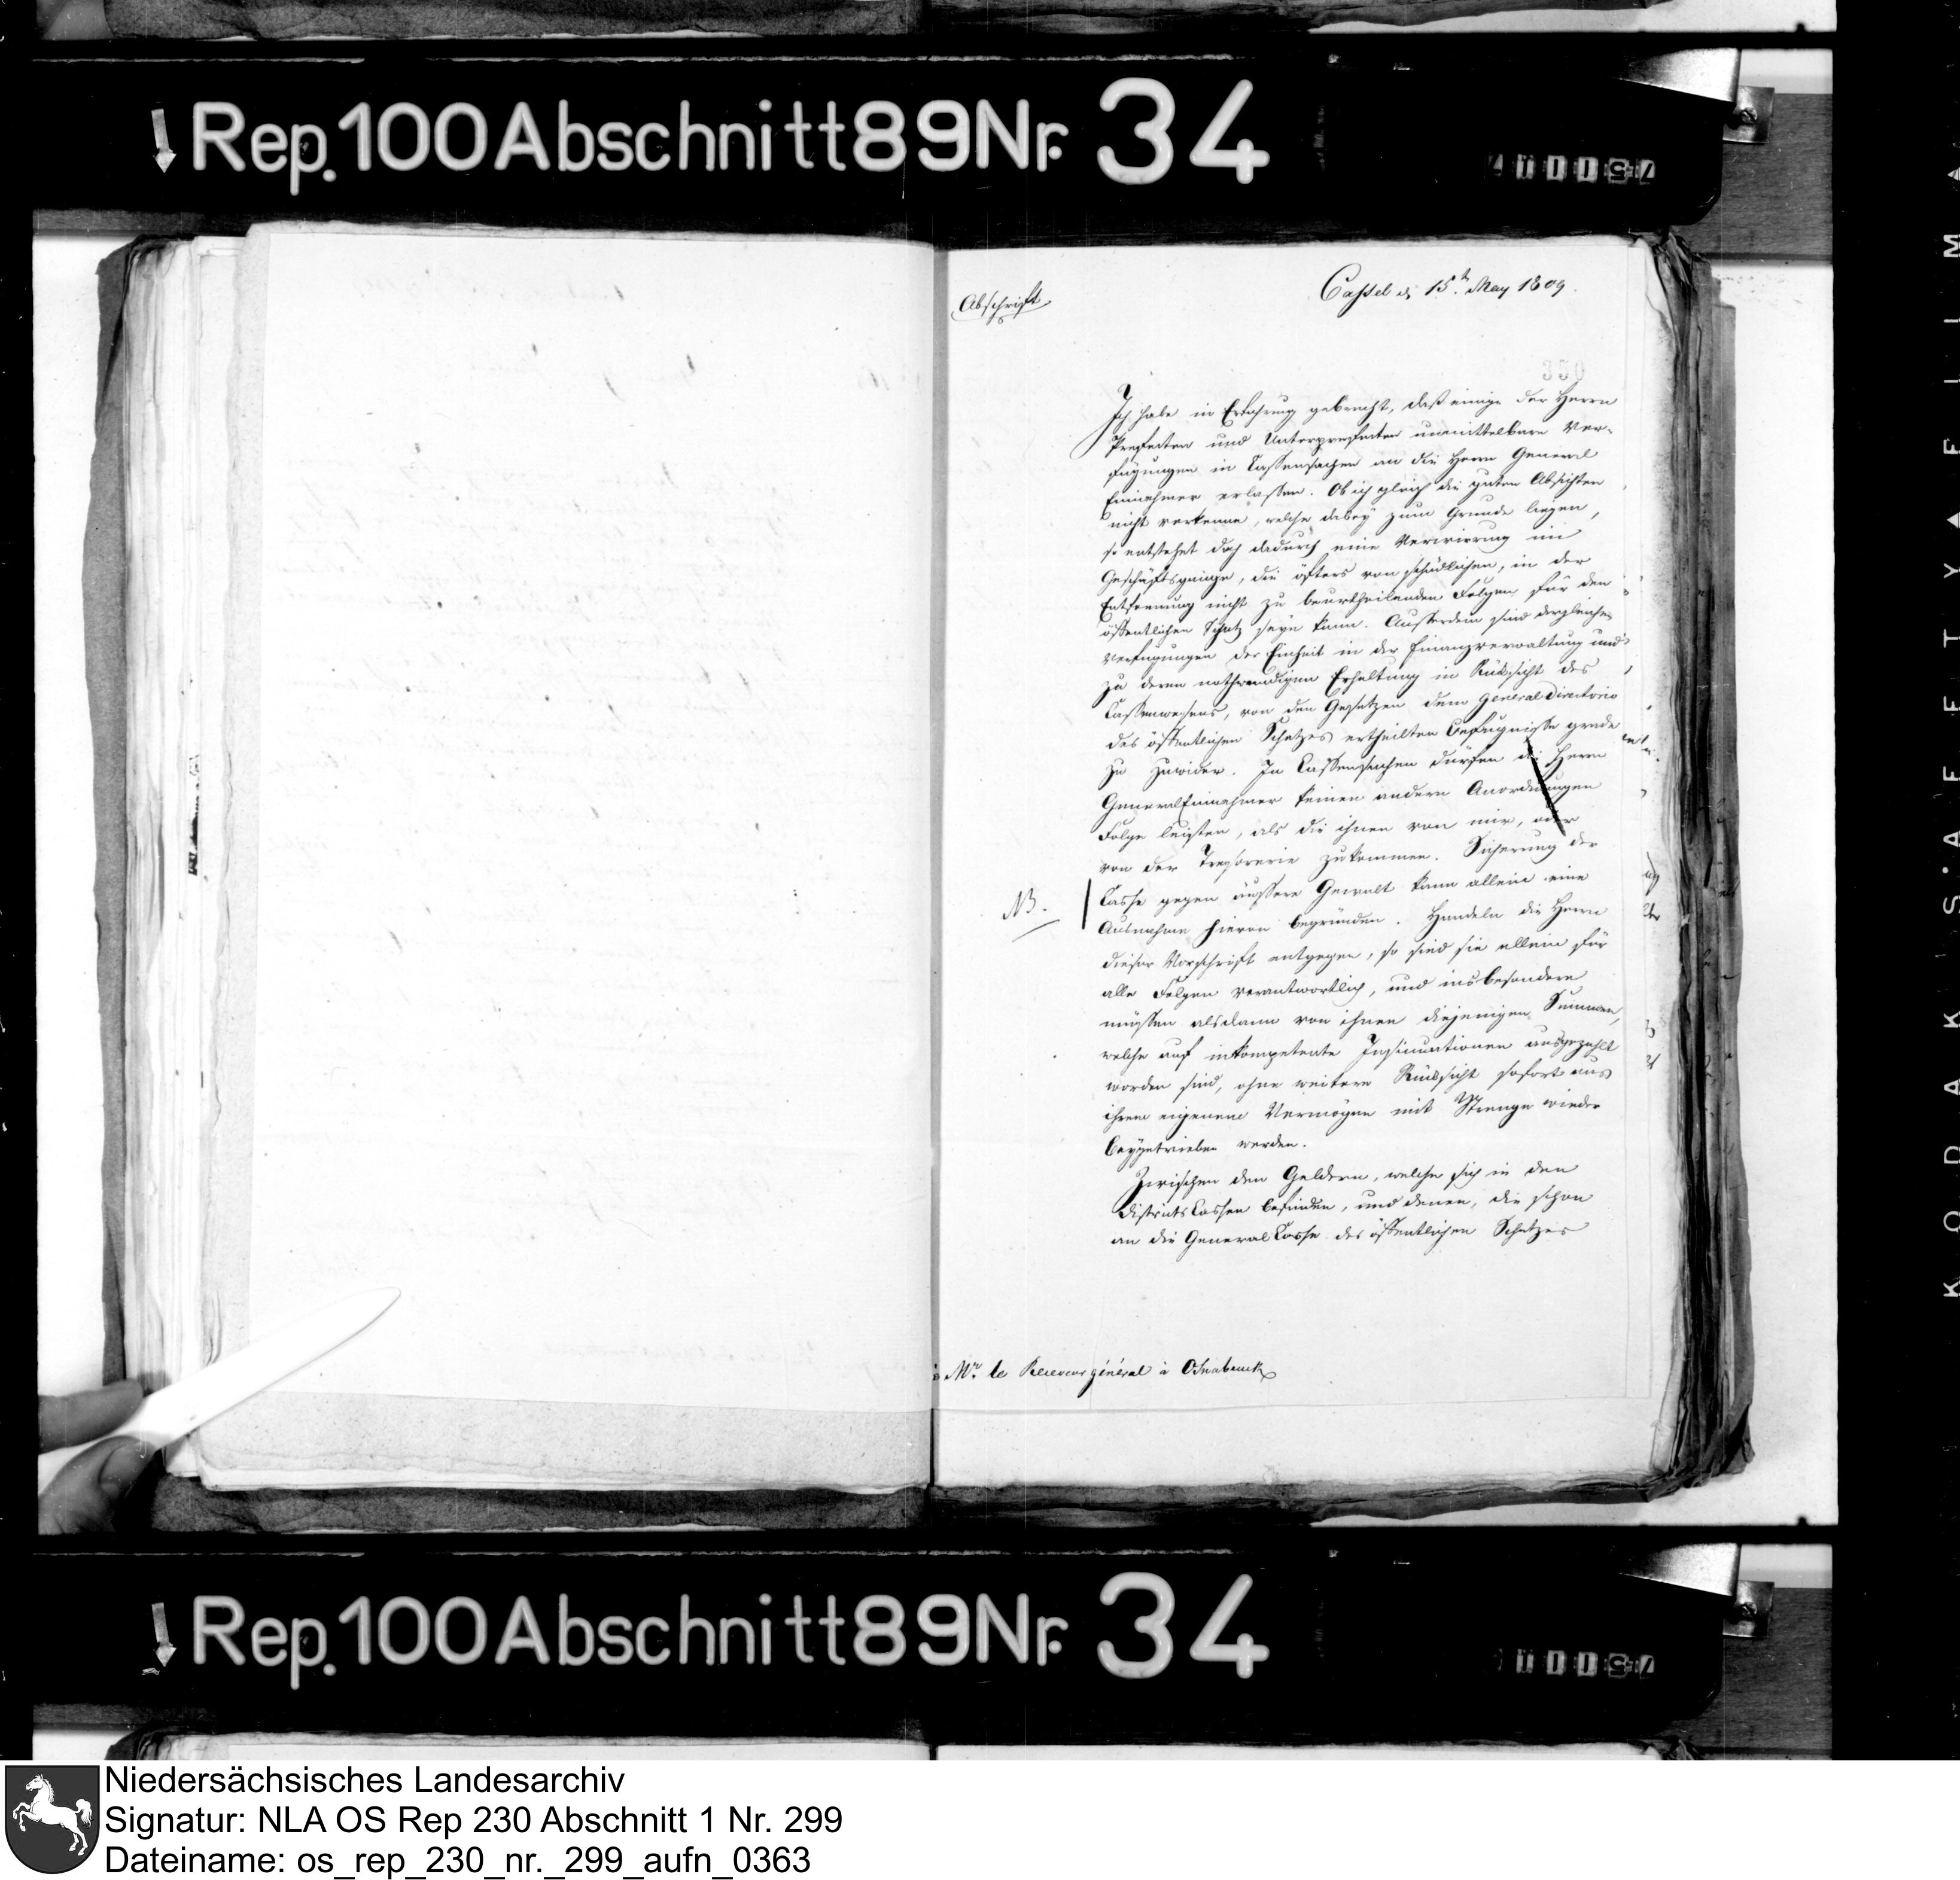 Rep. 100 Abschnitt 89 Nr. 34
Abschrift
Cassel d. 15ten May 1809.
350
Ich habe in Erfahrung gebracht, daß einige der Herrn
Praefecten und Unterpraefecten unmittelbare Ver-
fügungen in Cassensachen an die Herrn General
Einnehmer erlassen. Ob ich gleich die guten Absichten
nicht verkenne, welche dabey zum Grunde liegen,
so entstehet doch dadurch eine Verwirrung im
Geschäftsgange, die öfters von schädlichen, in der
Entfernung nicht zu beurtheilenden Folgen für den
öffentlichen Schatz seyn kann. Ausserdem sind dergleichen
Verfügungen der Einheit in der Finanzverwaltung und
zu deren nothwendigen Erhaltung in Rüksicht des
Cassenwesens, von den Gesetzen dem General Directorio
des öffentlichen Schatzes ertheilten Befugnisse grade
zu zuwider. In Cassensachen dürfen die Herrn
General Einnehmer keinen andern Anordnungen
Folge leisten, als die ihnen von mir, oder
von der Tresorerie zukommen. Sicherung der
NB.
Casse gegen äussere Gewalt kann allein eine
Ausnahme hievon begründen. Handeln die Herrn
dieser Vorschrift entgegen, so sind sie allein für
alle Folgen verantwortlich, und insbesondere
müssen alsdann von ihnen diejenigen Summen,
welche auf inkompetente Insinuationen ausgezahlt
worden sind, ohne weitere Rüksicht sofort aus
ihrem eigenen Vermögen mit Strenge wieder
beygetrieben werden.
Zwischen den Geldern, welche sich in den
Districts Cassen befinden, und denen, die schon
an die General Casse des öffentlichen Schatzes
à Mr. le Receveur général à Osnabruck
Rep. 100 Abschnitt 89 Nr. 34
KODAK SAFETY FILM
Niedersächsisches Landesarchiv
Signatur: NLA OS Rep 230 Abschnitt 1 Nr. 299
Dateiname: os_rep_230_nr._299_aufn_0363